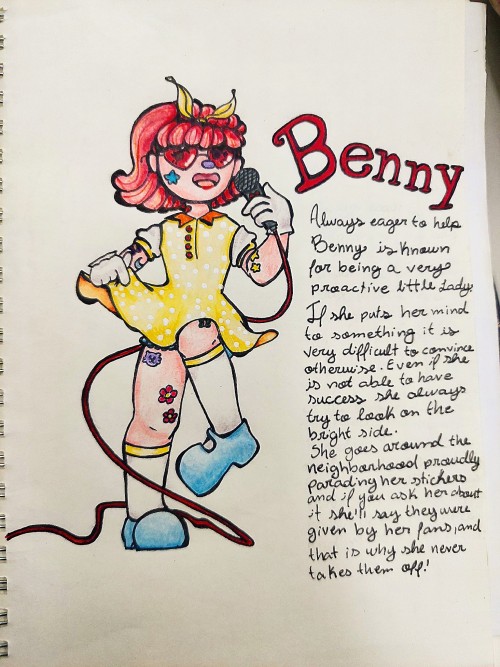 Benny
Always eager to help
Benny is known
for being a very
proactive little lady.
If she puts her mind
to something it is
very difficult to convince
otherwise. Even if she
is not able to have
success she always
try to look on the
bright side.
She goes around the
neighborhood proudly
parading her stickers
and if you ask her about
it she'll say they were
given by her fans, and
that is why she never
takes them off!